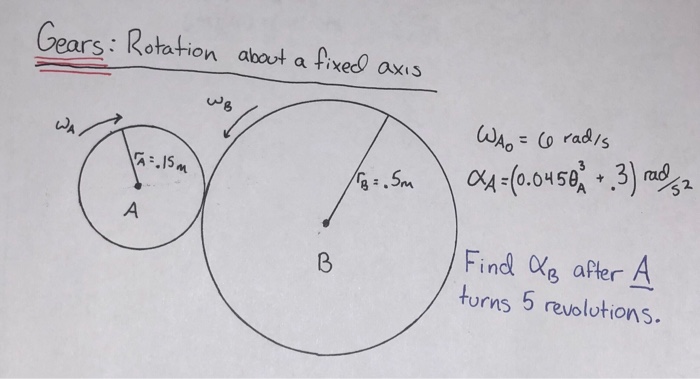 Gears: Rotation about a fixed axis
ω_A
ω_B
r_A = .15m
r_B = .5m
A
B
ω_A₀ = 6 rad/s
α_A = (0.045θ_A³ + .3) rad/s²
Find α_B after A
turns 5 revolutions.